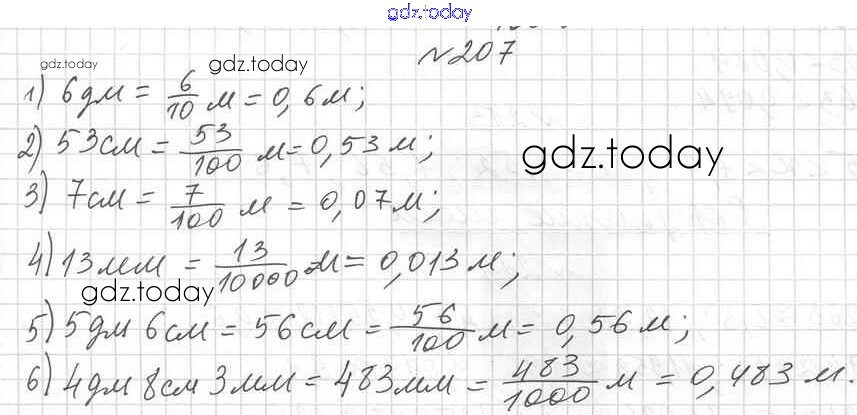 gdz.today
gdz.today
gdz.today
№207
1) 6дм = 6/10 м = 0,6м;
2) 53см = 53/100 м = 0,53м;
gdz.today
3) 7см = 7/100 м = 0,07м;
4) 13мм = 13/10000 м = 0,013м;
gdz.today
5) 5дм 6см = 56см = 56/100 м = 0,56м;
6) 4дм 8см 3мм = 483мм = 483/1000 м = 0,483м.